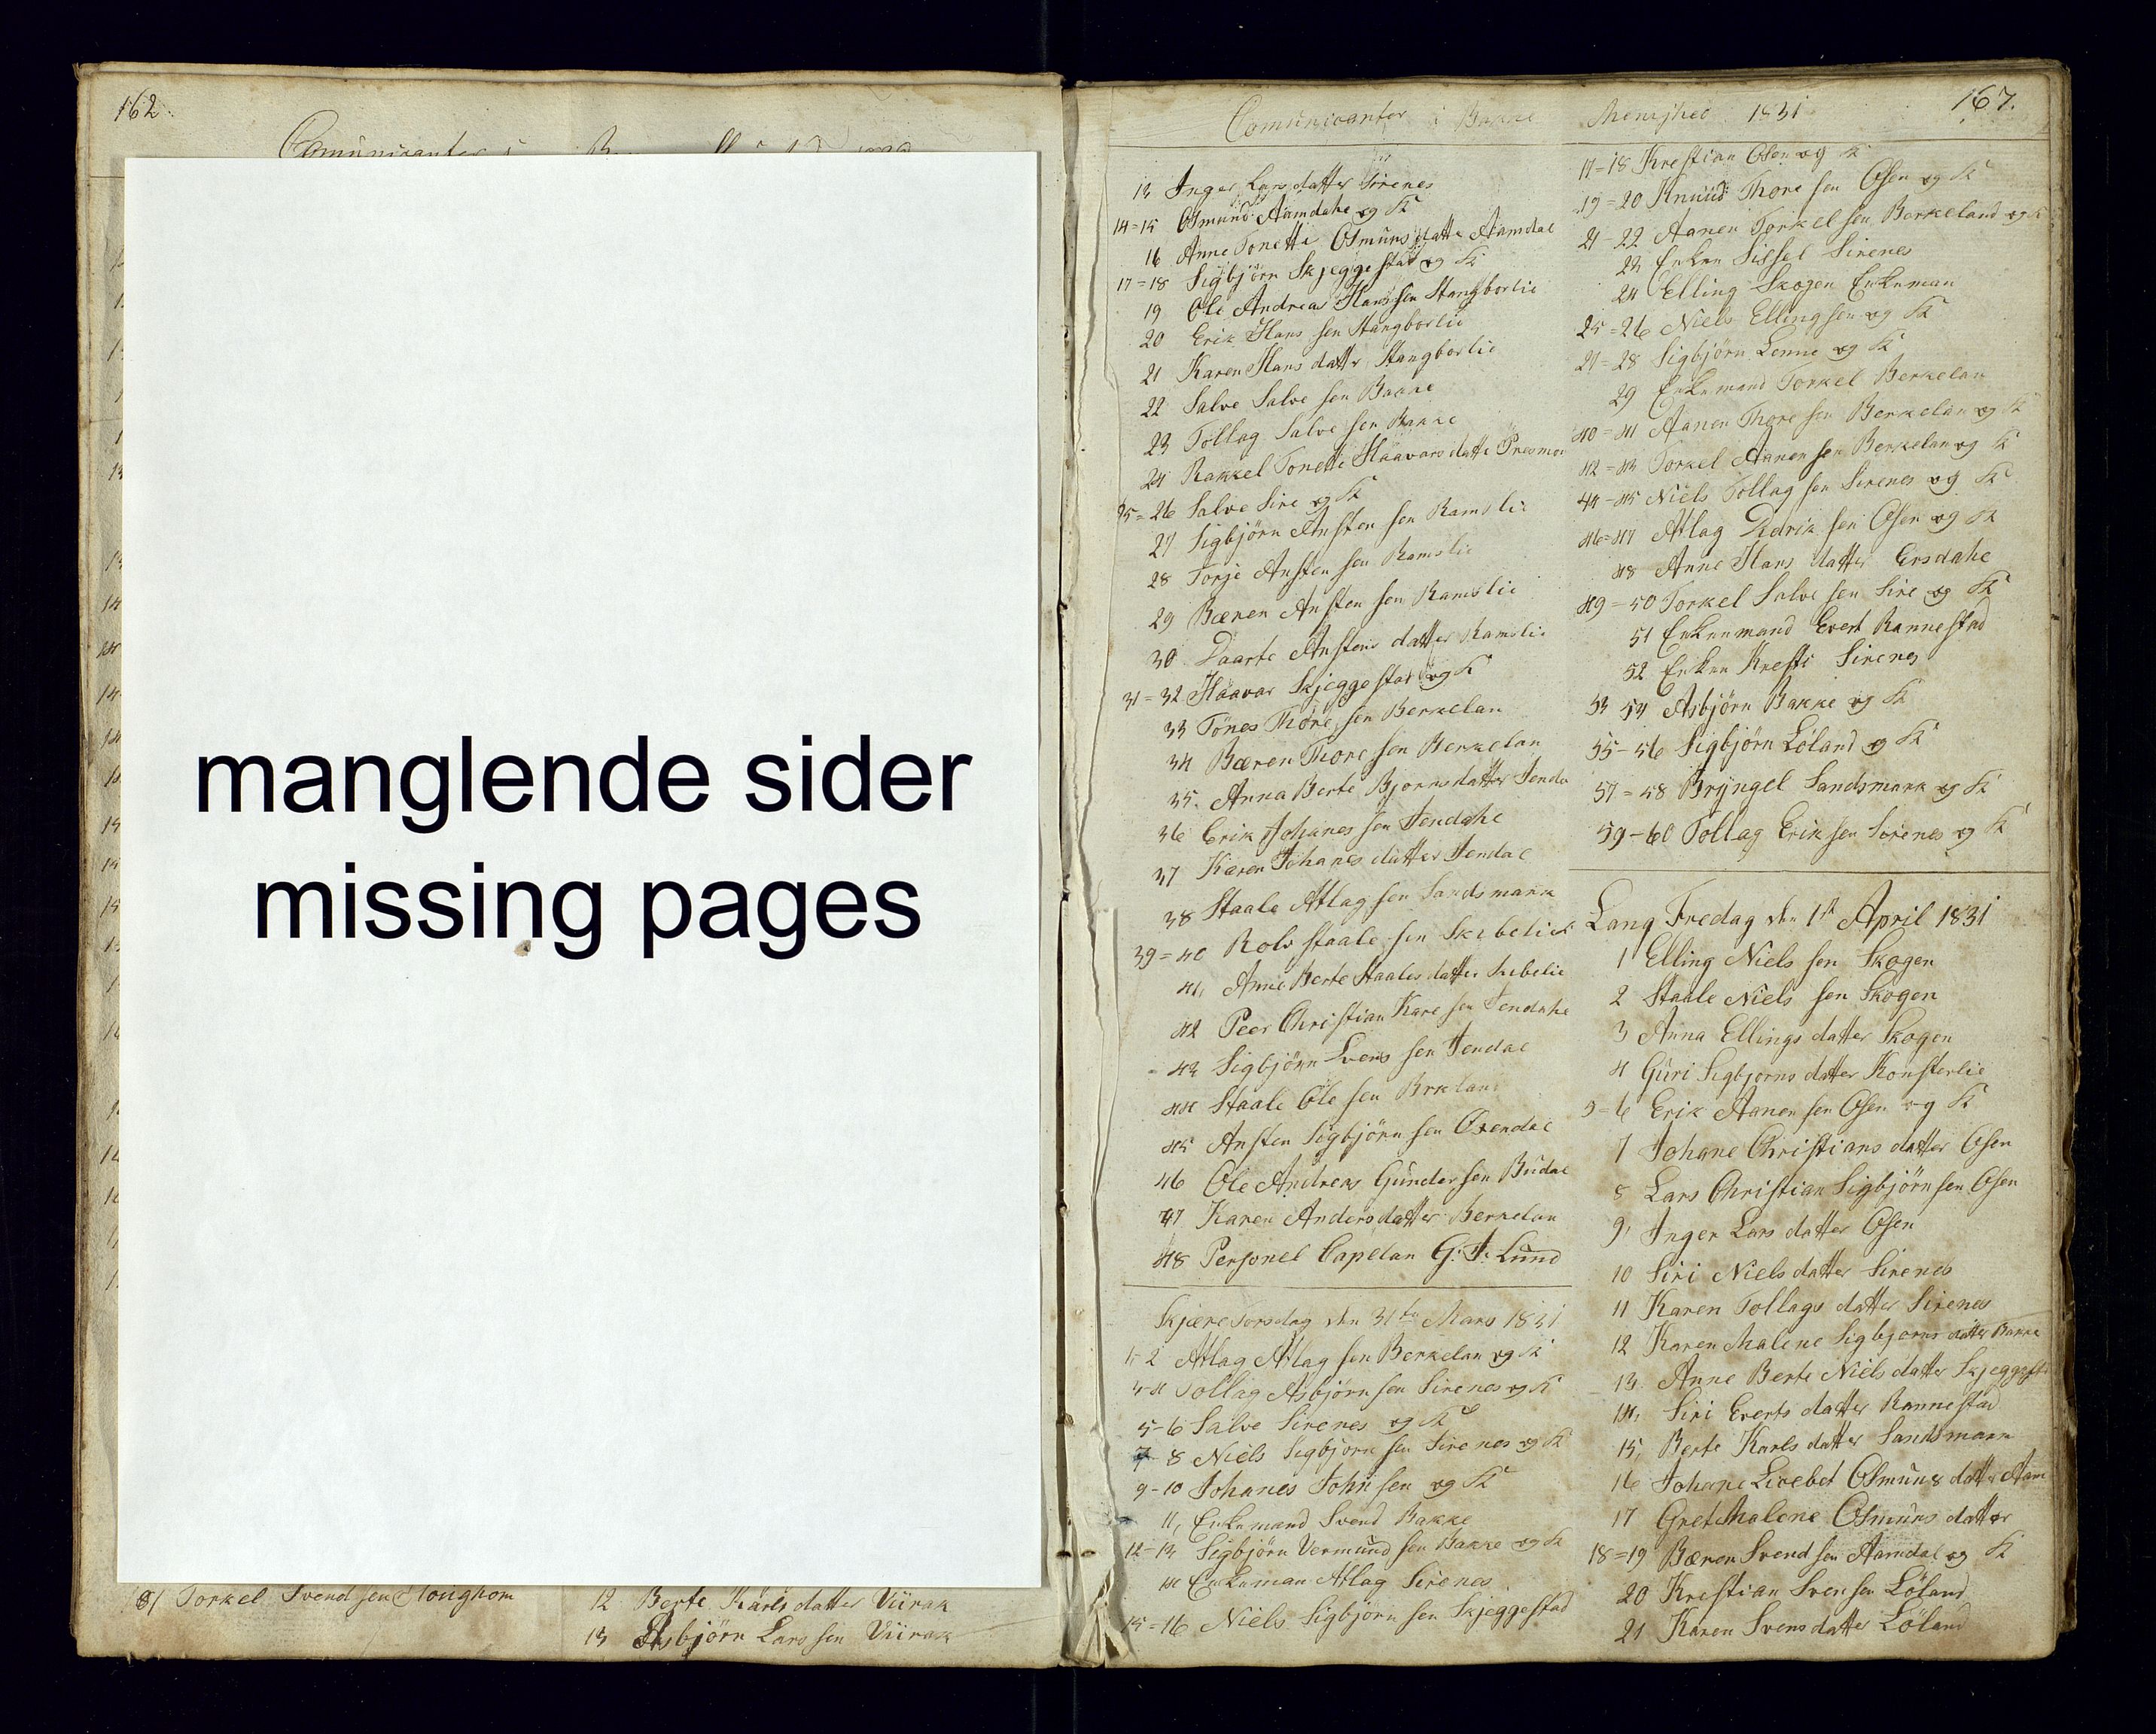 162.
Comunicanter i
manglende sider
missing pages
81 Torkel Svend sen
12 Berte Karls datter Viirak
13 Asbjörn Lars sen Viirak
Comunicanter i Bakke Menighed 1831
167.
13 Inger Lars datter Sirenes
14=15 Osmund Aamdahe og K
16 Anne Tonette Osmuns datte Aamdal
17=18 Sigbjörn Skjeggestad og K
19 Ole Andreas Hans sen Stangborlie
20 Erik Hans sen Stangborlie
21 Karen Hans datter Stangborlie
22 Salve Salve sen Bakke
23 Tollag Salve sen Bakke
24 Rakkel Tonette Haavars datte
25=26 Salve Sire og K
27 Sigbjörn Ansten sen Ramslie
28 Torje Ansten sen Ramslie
29 Bæren Ansten sen Ramslie
30 Daarte Anstens datter Ramslie
31=32 Haavar Skjeggestad og K
33 Tönes Thore sen Berkelan
34 Bæren Thore sen Berkelan
35. Anna Berte Bjorns datter
36 Erik Johanes sen Jendahe
37 Karen Johanes datter Jendal
38 Staale Atlag sen Sandsmark
39=40 Rolv Staale sen
41, Anne Berte Staales datter
42 Peer Christian Kare sen Jendahe
43 Sigbjörn Svens sen Jendal
44 Staale Ole sen
45 Ansten Sigbjörn sen Oxendal
46 Ole Andreas Gunder sen
47 Karen Anders datter Berkelan
48 Personel Capelan G. F. Lund
Skjære Torsdag den 31te Mars 1831
1-2 Atlag Atlag sen Berkelan og K
3-4 Tollag Asbjörn sen Sirenes og K
5-6 Salve Sirenes og K
7-8 Niels Sigbjorn sen Sirenes og K
9-10 Johanes John sen og K
11, Enkemand Svend Bakke
12-13 Sigbjörn Vermund sen Bakke og K
14 Enkeman Atlag Sirenes
15=16 Niels Sigbjörn sen Skjeggestad
17=18 Krestian Osen og K
19=20 Knuud Thore sen Osen og K
21-22 Aanen Torkel sen Berkeland og K
23 Enken Sissel Sirenes
24 Elling Skogen Enkeman
25=26 Niels Elling sen og K
27=28 Sigbjörn Lomme og K
29 Enkemand Torkel Berkelan
40=41 Aanen Thore sen Berkelan og K
42=43 Torkel Aanen sen Berkelan og K
44-45 Niels Tollag sen Sirenes og K
46=47 Atlag Didrik sen Osen og K
48 Anne Hans datter Ersdahe
49-50 Torkel Salve sen Sire og K
51 Enkemand Evert Rannestad
52 Enken Kresti Sirenes
53 54 Asbjörn Bakke og K
55-56 Sigbjörn Löland og K
57=58 Bryngel Sandsmark og K
59-60 Tollag Erik sen Sirenes og K
Lang Fredag den 1st April 1831
1 Elling Niels sen Skogen
2 Staale Niels sen Skogen
3 Anna Ellings datter Skogen
4 Guri Sigbjorns datter
5-6 Erik Aanen sen Osen og K
7 Johane Christians datter Osen
8 Lars Christian Sigbjörn sen Osen
9, Inger Lars datter Osen
10 Siri Niels datter Sirenes
11 Karen Tollags datter Sirenes
12 Karen Malene Sigbjorns datter Bakke
13. Anne Berte Niels datter
14, Siri Everts datter Rannestad
15, Berte Karls datter Sandsmark
16 Johane Lisebet Osmuns datter Aam
17 Gret Malene Osmuns datter
18=19 Bæren Svend sen Aamdal og K
20 Krestian Sven sen Löland
21 Karen Svens datter Löland